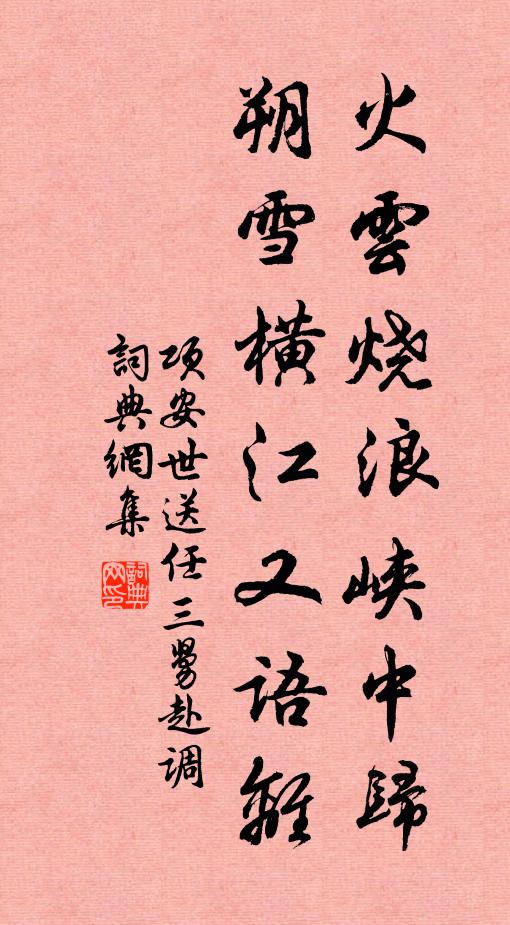 火雲烧浪峡中歸
朔雪橫江又語離
项安世送任三舅赴调
詞典網集
詞典網印